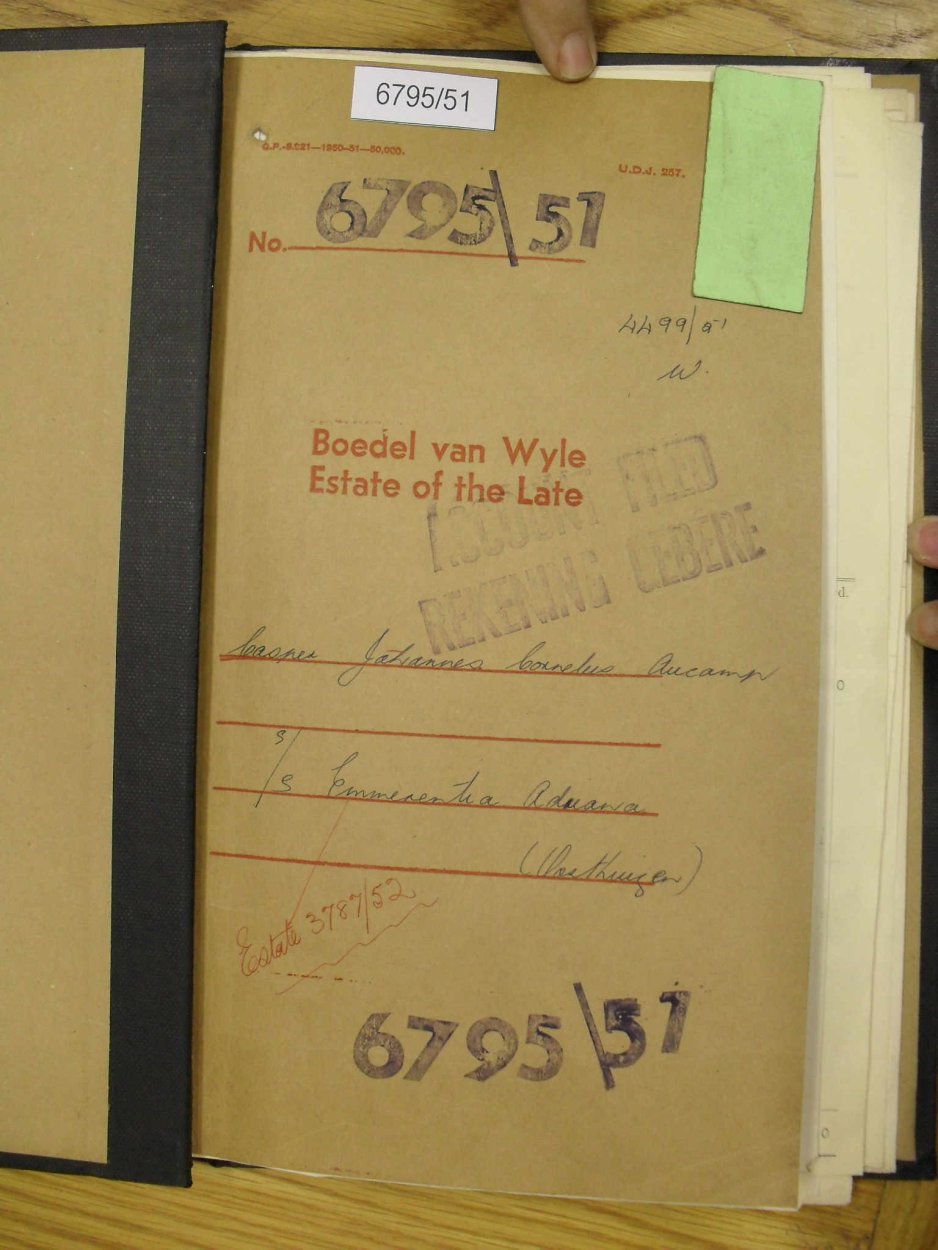 6795/51
G.P.-S.921—1950-51—50,000.
U.D.J. 257.
No. 6795\51
4499/51
W.
Boedel van Wyle
Estate of the Late
ACCOUNT FILED
REKENING GEBÊRE
Casper Johannes Cornelus Aucamp
s/s Emmerentia Adriana
(Oosthuizen)
Estate 3787/52
6795\51
d.
0
0